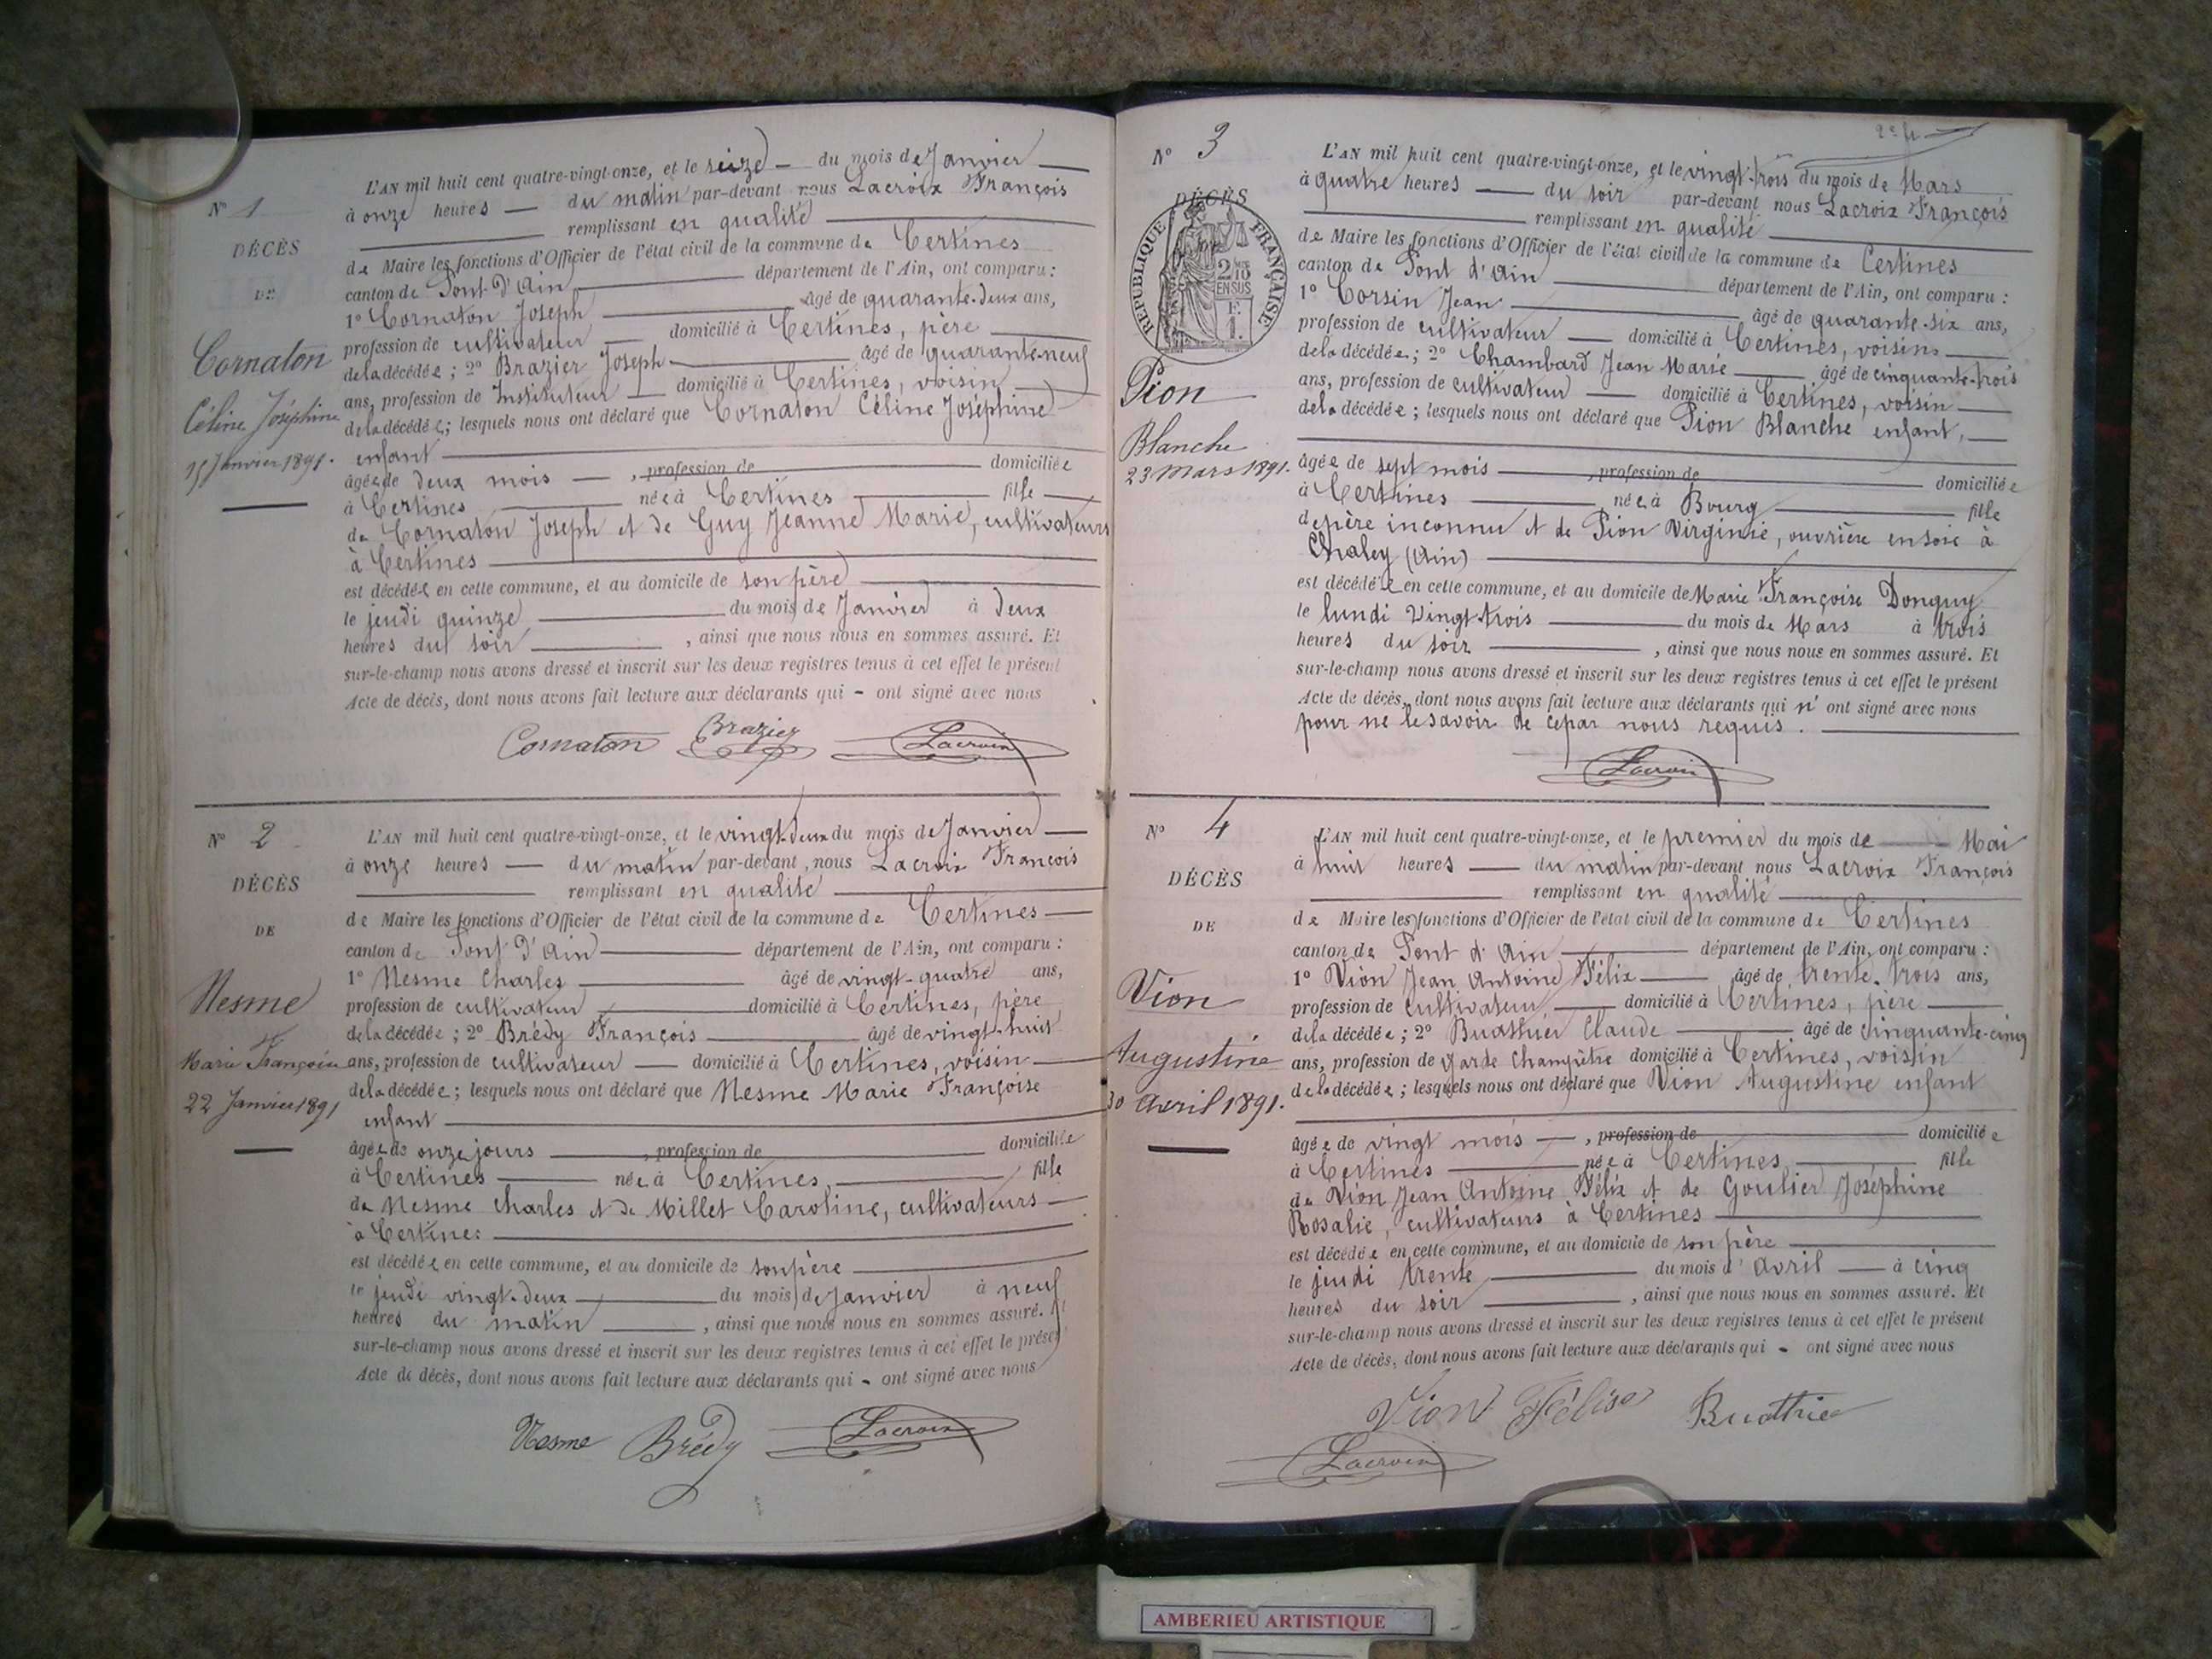 N° 1
DÉCÈS
DE
Cornaton
Céline Joséphine
15 Janvier 1891.
L'AN mil huit cent quatre-vingt-onze, et le seize du mois de Janvier
à onze heures du matin par-devant nous Lacroix François
remplissant en qualité
de Maire les fonctions d'Officier de l'état civil de la commune de Certines
canton de Pont-d'Ain département de l'Ain, ont comparu :
1° Cornaton Joseph âgé de quarante-deux ans,
profession de cultivateur domicilié à Certines, père
de la décédée ; 2° Brazier Joseph âgé de quarante-neuf
ans, profession de Instituteur domicilié à Certines, voisin
de la décédée ; lesquels nous ont déclaré que Cornaton Céline Joséphine
enfant
âgée de deux mois , profession de domiciliée
à Certines née à Certines fille
de Cornaton Joseph et de Guy Jeanne Marie, cultivateurs
à Certines
est décédée en cette commune, et au domicile de son père
le jeudi quinze du mois de Janvier à deux
heures du soir , ainsi que nous nous en sommes assuré. Et
sur-le-champ nous avons dressé et inscrit sur les deux registres tenus à cet effet le présent
Acte de décès, dont nous avons fait lecture aux déclarants qui - ont signé avec nous
Cornaton Brazier Lacroix
N° 2
DÉCÈS
DE
Nesme
Marie Françoise
22 Janvier 1891
L'AN mil huit cent quatre-vingt-onze, et le vingt-deux du mois de Janvier
à onze heures du matin par-devant nous Lacroix François
remplissant en qualité
de Maire les fonctions d'Officier de l'état civil de la commune de Certines
canton de Pont d'Ain département de l'Ain, ont comparu :
1° Nesme Charles âgé de vingt-quatre ans,
profession de cultivateur domicilié à Certines, père
de la décédée ; 2° Brédy François âgé de vingt-huit
ans, profession de cultivateur domicilié à Certines, voisin
de la décédée ; lesquels nous ont déclaré que Nesme Marie Françoise
enfant
âgée de onze jours , profession de domiciliée
à Certines née à Certines, fille
de Nesme Charles et de Millet Caroline, cultivateurs
à Certines
est décédée en cette commune, et au domicile de son père
le jeudi vingt-deux du mois de Janvier à neuf
heures du matin , ainsi que nous nous en sommes assuré. Et
sur-le-champ nous avons dressé et inscrit sur les deux registres tenus à cet effet le présent
Acte de décès, dont nous avons fait lecture aux déclarants qui - ont signé avec nous
Nesme Brédy Lacroix
N° 3
DÉCÈS
RÉPUBLIQUE FRANÇAISE
2/10
EN SUS
F.
1.
Pion
Blanche
23 Mars 1891.
L'AN mil huit cent quatre-vingt-onze, et le vingt-trois du mois de Mars
à quatre heures du soir par-devant nous Lacroix François
remplissant en qualité
de Maire les fonctions d'Officier de l'état civil de la commune de Certines
canton de Pont d'Ain département de l'Ain, ont comparu :
1° Corsin Jean âgé de quarante-six ans,
profession de cultivateur domicilié à Certines, voisin
de la décédée ; 2° Chambard Jean Marie âgé de cinquante-trois
ans, profession de cultivateur domicilié à Certines, voisin
de la décédée ; lesquels nous ont déclaré que Pion Blanche enfant,
âgée de sept mois , profession de domiciliée
à Certines née à Bourg fille
de père inconnu et de Pion Virginie, ouvrière en soie à
Chaley (Ain)
est décédée en cette commune, et au domicile de Marie Françoise Donguy
le lundi vingt-trois du mois de Mars à trois
heures du soir , ainsi que nous nous en sommes assuré. Et
sur-le-champ nous avons dressé et inscrit sur les deux registres tenus à cet effet le présent
Acte de décès, dont nous avons fait lecture aux déclarants qui n'ont signé avec nous
pour ne le savoir de ce par nous requis.
Lacroix
N° 4
DÉCÈS
DE
Vion
Augustine
30 Avril 1891.
L'AN mil huit cent quatre-vingt-onze, et le premier du mois de Mai
à huit heures du matin par-devant nous Lacroix François
remplissant en qualité
de Maire les fonctions d'Officier de l'état civil de la commune de Certines
canton de Pont d'Ain département de l'Ain, ont comparu :
1° Vion Jean Antoine Félix âgé de trente-trois ans,
profession de cultivateur domicilié à Certines, père
de la décédée ; 2° Buathier Claude âgé de cinquante-cinq
ans, profession de garde champêtre domicilié à Certines, voisin
de la décédée ; lesquels nous ont déclaré que Vion Augustine enfant
âgée de vingt mois , profession de domiciliée
à Certines née à Certines fille
de Vion Jean Antoine Félix et de Goulier Joséphine
Rosalie, cultivateurs à Certines
est décédée en cette commune, et au domicile de son père
le jeudi trente du mois d'avril à cinq
heures du soir , ainsi que nous nous en sommes assuré. Et
sur-le-champ nous avons dressé et inscrit sur les deux registres tenus à cet effet le présent
Acte de décès, dont nous avons fait lecture aux déclarants qui - ont signé avec nous
Vion Félix Buathier
Lacroix
AMBERIEU ARTISTIQUE